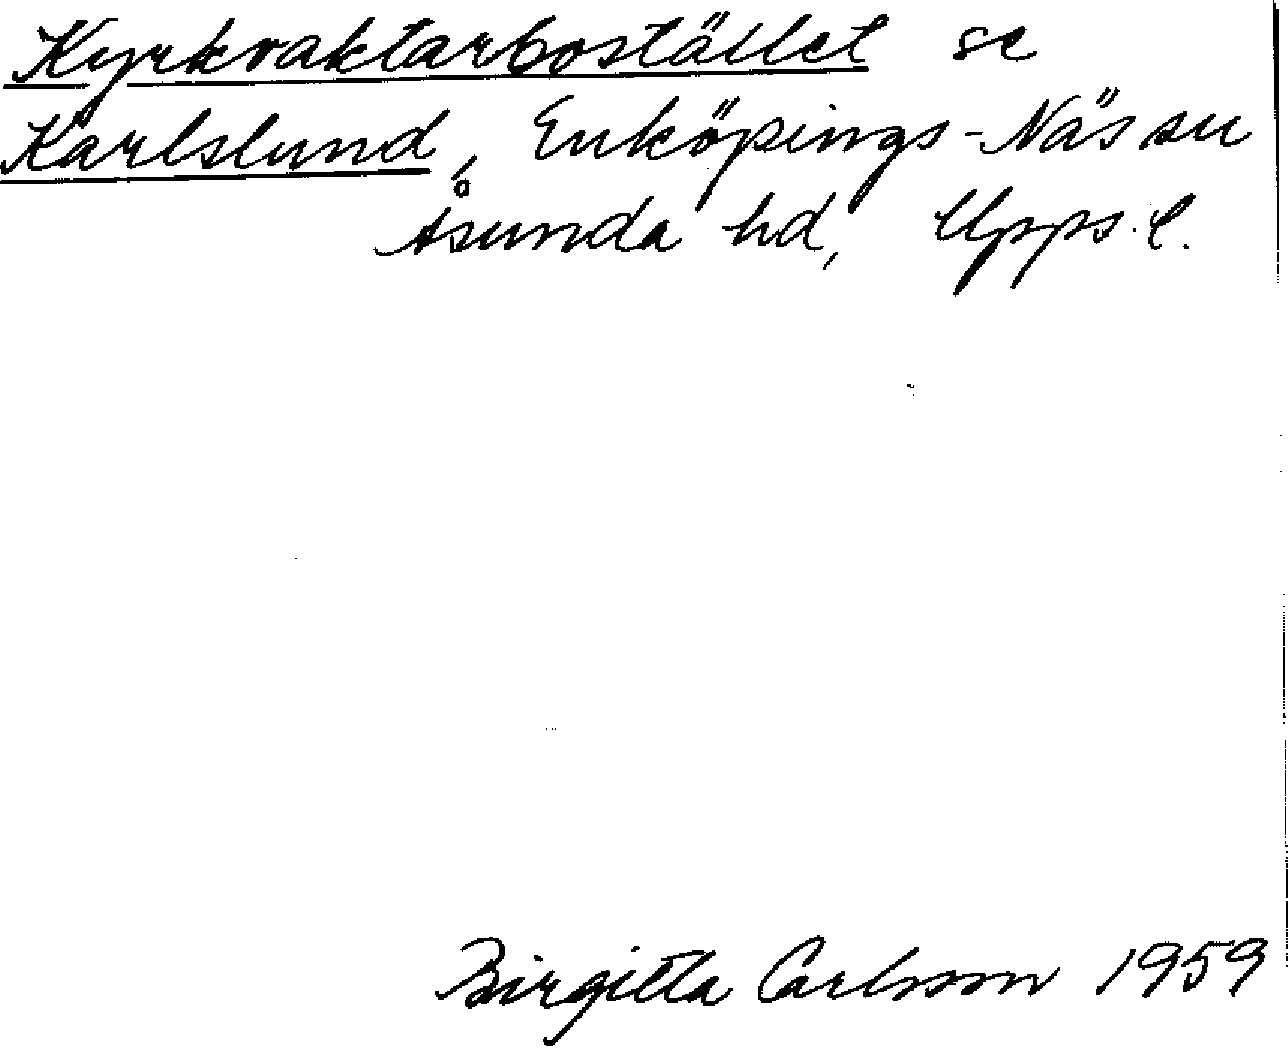 Kyrkvaktarbostället se
Karlslund, Enköpings-Näs sn
Åsunda hd, Upps. l.
Birgitta Carlsson 1959